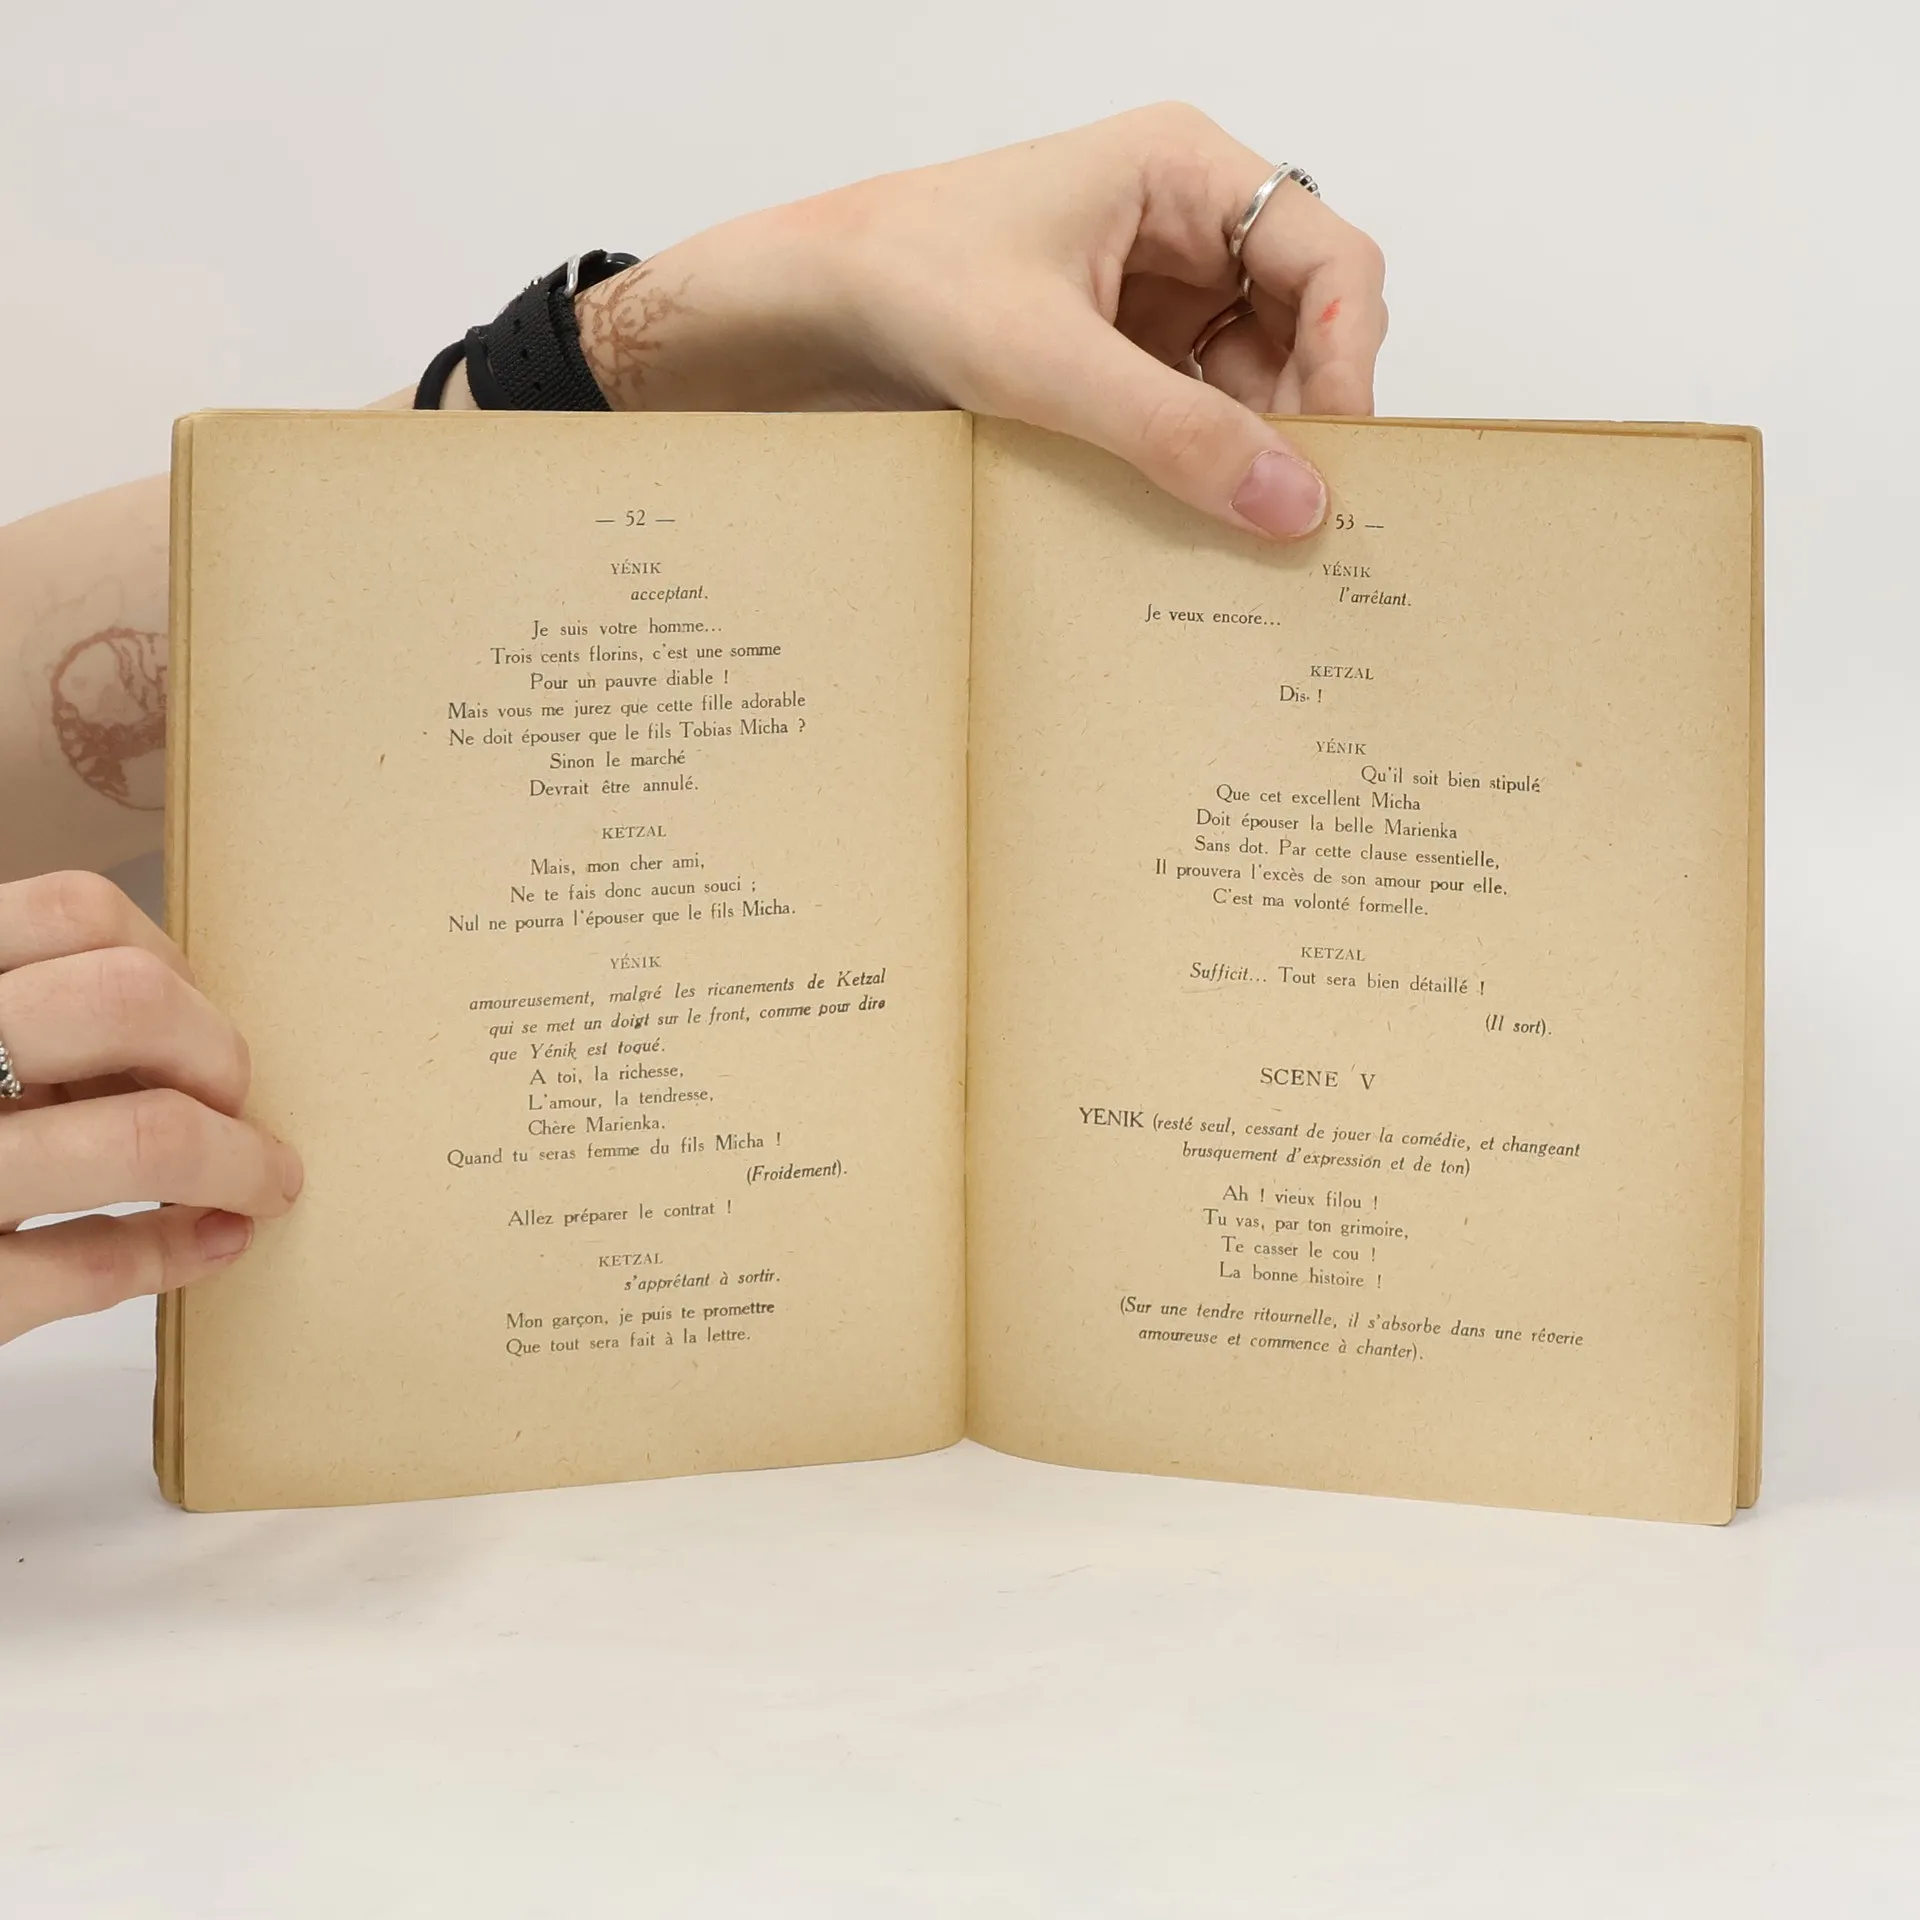 — 52 —
YÉNIK
acceptant.
Je suis votre homme...
Trois cents florins, c'est une somme
Pour un pauvre diable !
Mais vous me jurez que cette fille adorable
Ne doit épouser que le fils Tobias Micha ?
Sinon le marché
Devrait être annulé.
KETZAL
Mais, mon cher ami,
Ne te fais donc aucun souci ;
Nul ne pourra l'épouser que le fils Micha.
YÉNIK
amoureusement, malgré les ricanements de Ketzal
qui se met un doigt sur le front, comme pour dire
que Yénik est toqué.
A toi, la richesse,
L'amour, la tendresse,
Chère Marienka.
Quand tu seras femme du fils Micha !
(Froidement).
Allez préparer le contrat !
KETZAL
s'apprêtant à sortir.
Mon garçon, je puis te promettre
Que tout sera fait à la lettre.
53 —
YÉNIK
l'arrêtant.
Je veux encore...
KETZAL
Dis !
YÉNIK
Qu'il soit bien stipulé
Que cet excellent Micha
Doit épouser la belle Marienka
Sans dot. Par cette clause essentielle,
Il prouvera l'excès de son amour pour elle.
C'est ma volonté formelle.
KETZAL
Sufficit... Tout sera bien détaillé !
(Il sort).
SCENE V
YENIK (resté seul, cessant de jouer la comédie, et changeant
brusquement d'expression et de ton)
Ah ! vieux filou !
Tu vas, par ton grimoire,
Te casser le cou !
La bonne histoire !
(Sur une tendre ritournelle, il s'absorbe dans une rêverie
amoureuse et commence à chanter).